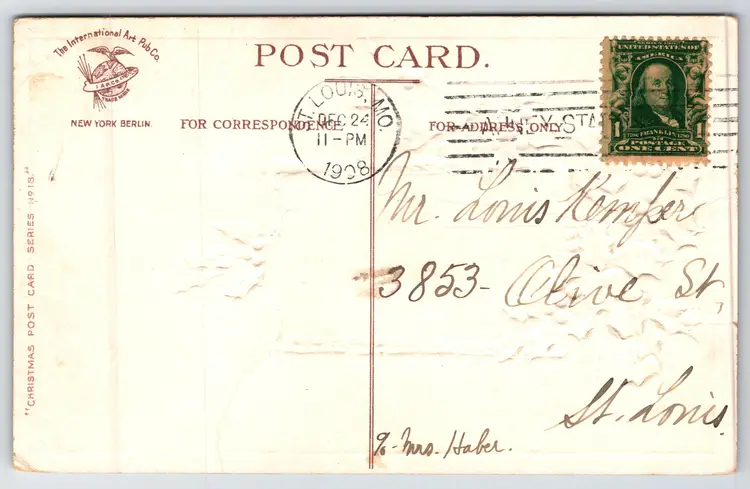 The International Art Pub Co.
NEW YORK BERLIN.
POST CARD.
FOR CORRESPONDENCE
FOR ADDRESS ONLY
ST. LOUIS, MO.
DEC 24
11-PM
1908
UNITED STATES OF
AMERICA
1 FRANKLIN 1
POSTAGE
ONE CENT
"CHRISTMAS POST CARD SERIES Nº 18."
Mr. Louis Kemper
3853- Olive St,
St. Louis.
% Mrs. Haber.